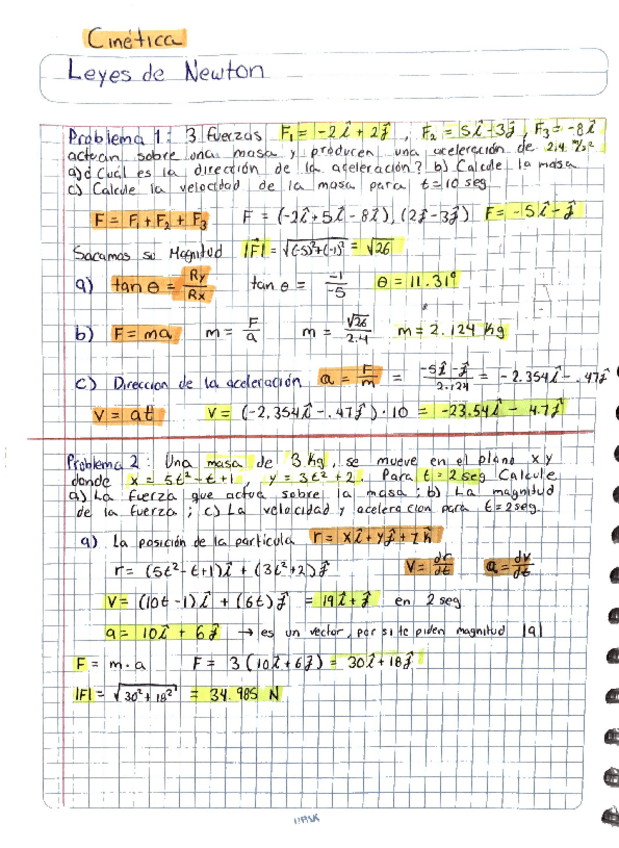 Cinética
Leyes de Newton
Problema 1: 3 fuerzas F₁ = -2î + 2ĵ , F₂ = 5î - 3ĵ , F₃ = -8î
actuan sobre una masa y producen una aceleración de 2.4 m/s²
a) ¿Cual es la dirección de la aceleración? b) Calcule la masa
c) Calcule la velocidad de la masa para t = 10 seg
F = F₁ + F₂ + F₃ F = (-2î + 5î - 8î), (2ĵ - 3ĵ) F = -5î - ĵ
Sacamos su Magnitud |F| = √(-5)² + (-1)² = √26
a) tan θ = Ry/Rx tan θ = -1/-5 θ = 11.31°
b) F = ma m = F/a m = √26/2.4 m = 2.124 kg
c) Direccion de la aceleración a = F/m = -5î - ĵ/2.124 = -2.354î - .47ĵ
V = at V = (-2.354î - .47ĵ) · 10 = -23.54î - 4.7ĵ
Problema 2: Una masa de 3 kg, se mueve en el plano xy
donde x = 5t² - t + 1, y = 3t² + 2. Para t = 2 seg Calcule
a) La fuerza que actua sobre la masa; b) La magnitud
de la fuerza; c) La velocidad y aceleracion para t = 2 seg.
a) La posición de la particula r = xî + yĵ + zk̂
r = (5t² - t + 1)î + (3t² + 2)ĵ V = dr/dt a = dv/dt
V = (10t - 1)î + (6t)ĵ = 19î + ĵ en 2 seg
a = 10î + 6ĵ → es un vector, por si te piden magnitud |a|
F = m · a F = 3 (10î + 6ĵ) = 30î + 18ĵ
|F| = √30² + 18² = 34.985 N